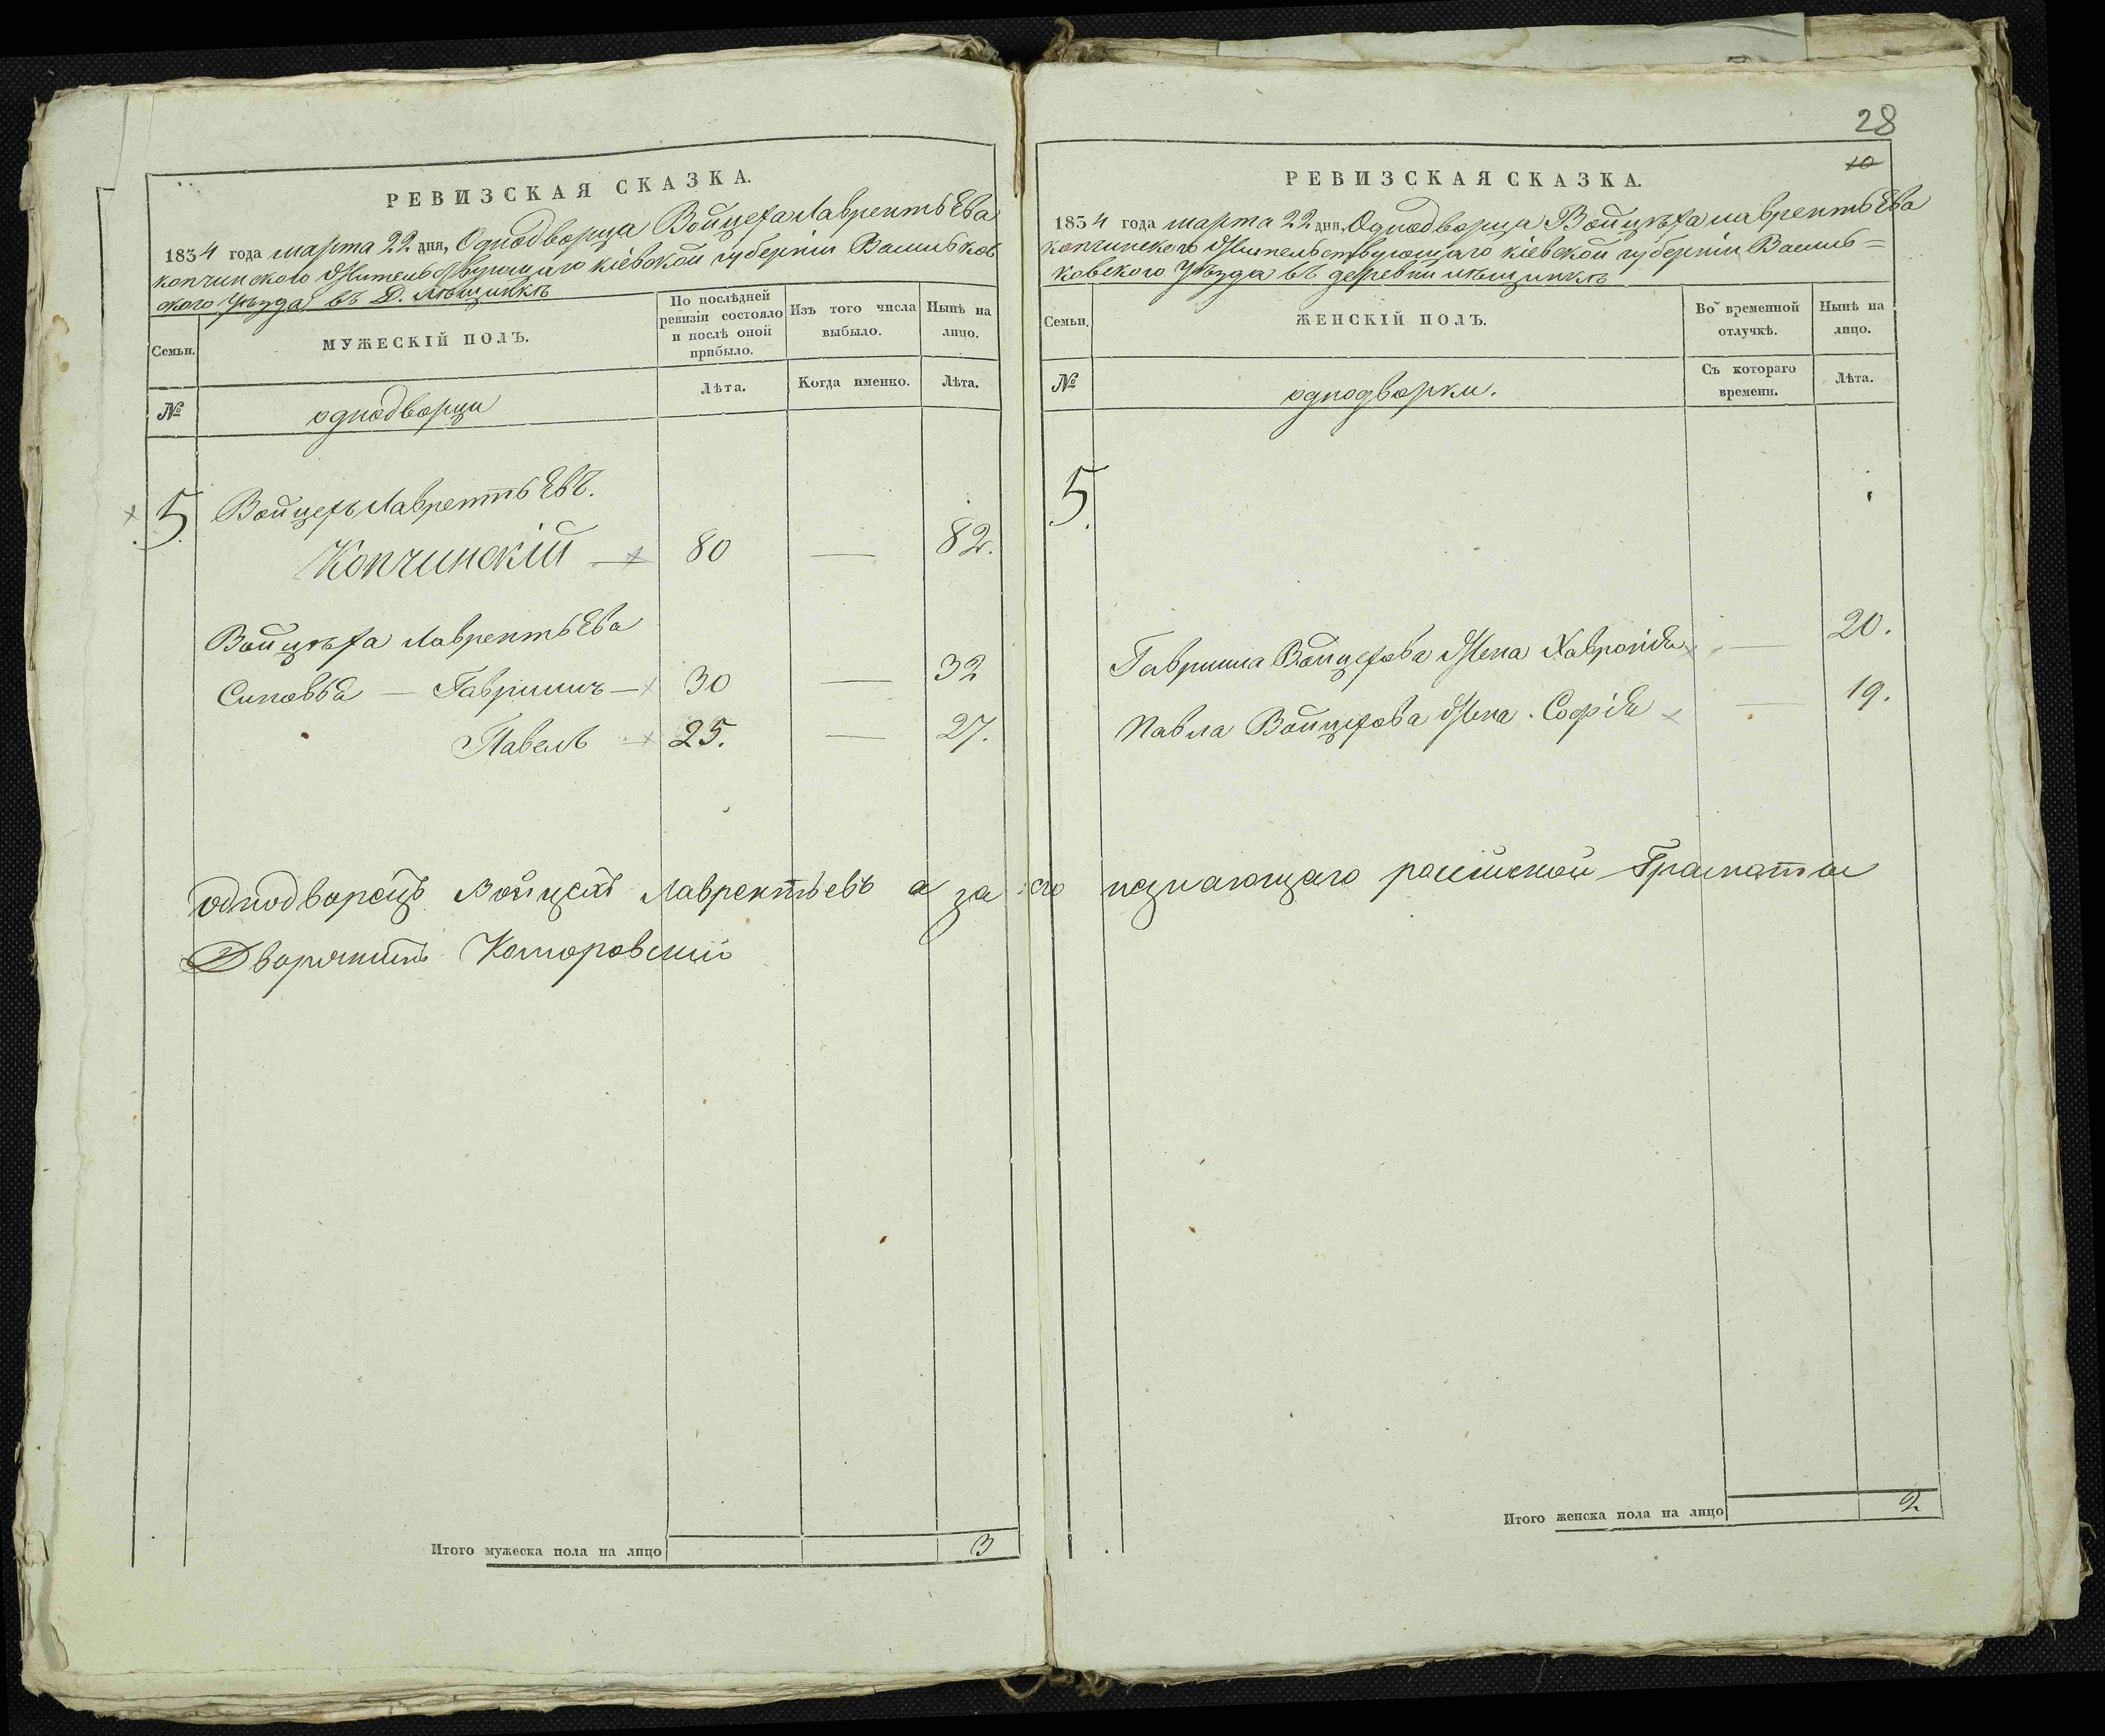 РЕВИЗСКАЯ СКАЗКА.
1834 года марта 22 дня, Однодворца Войцеха Лаврентьева
копчинского жительствующаго кіевской губерніи Васильков
ского уѣзда въ Д.
Семьи.
МУЖЕСКІЙ ПОЛЪ.
По послѣдней ревизіи состояло и послѣ оной прибыло.
Изъ того числа выбыло.
Нынѣ на лицо.
№
однодворци
Лѣта.
Когда именно.
Лѣта.
5 Войцехъ Лаврентьевъ.
Копчинскій — 80 — 82.
Войцѣха Лаврентьева
Синовья — Гавришъ — 30 — 32
Павелъ — 25. — 27.
Итого мужеска пола на лицо 3
28
10
РЕВИЗСКАЯ СКАЗКА.
1834 года марта 22 дня, Однодворца Войцѣха лаврентьева
копчинского жительствующаго кіевской губерніи Василь=
ковского Уѣзда въ деревни
Семьи.
ЖЕНСКІЙ ПОЛЪ.
Во временной отлучкѣ.
Нынѣ на лицо.
№
однодворки.
Съ котораго времени.
Лѣта.
5.
Гавриша Войцехова жена Хавронія — 20.
Павла Войцехова жена. Софія — 19.
однодворецъ Войцехъ Лаврентьевъ а за его незнающаго расійской Граматы
Дворянинъ Коморовский
Итого женска пола на лицо 2